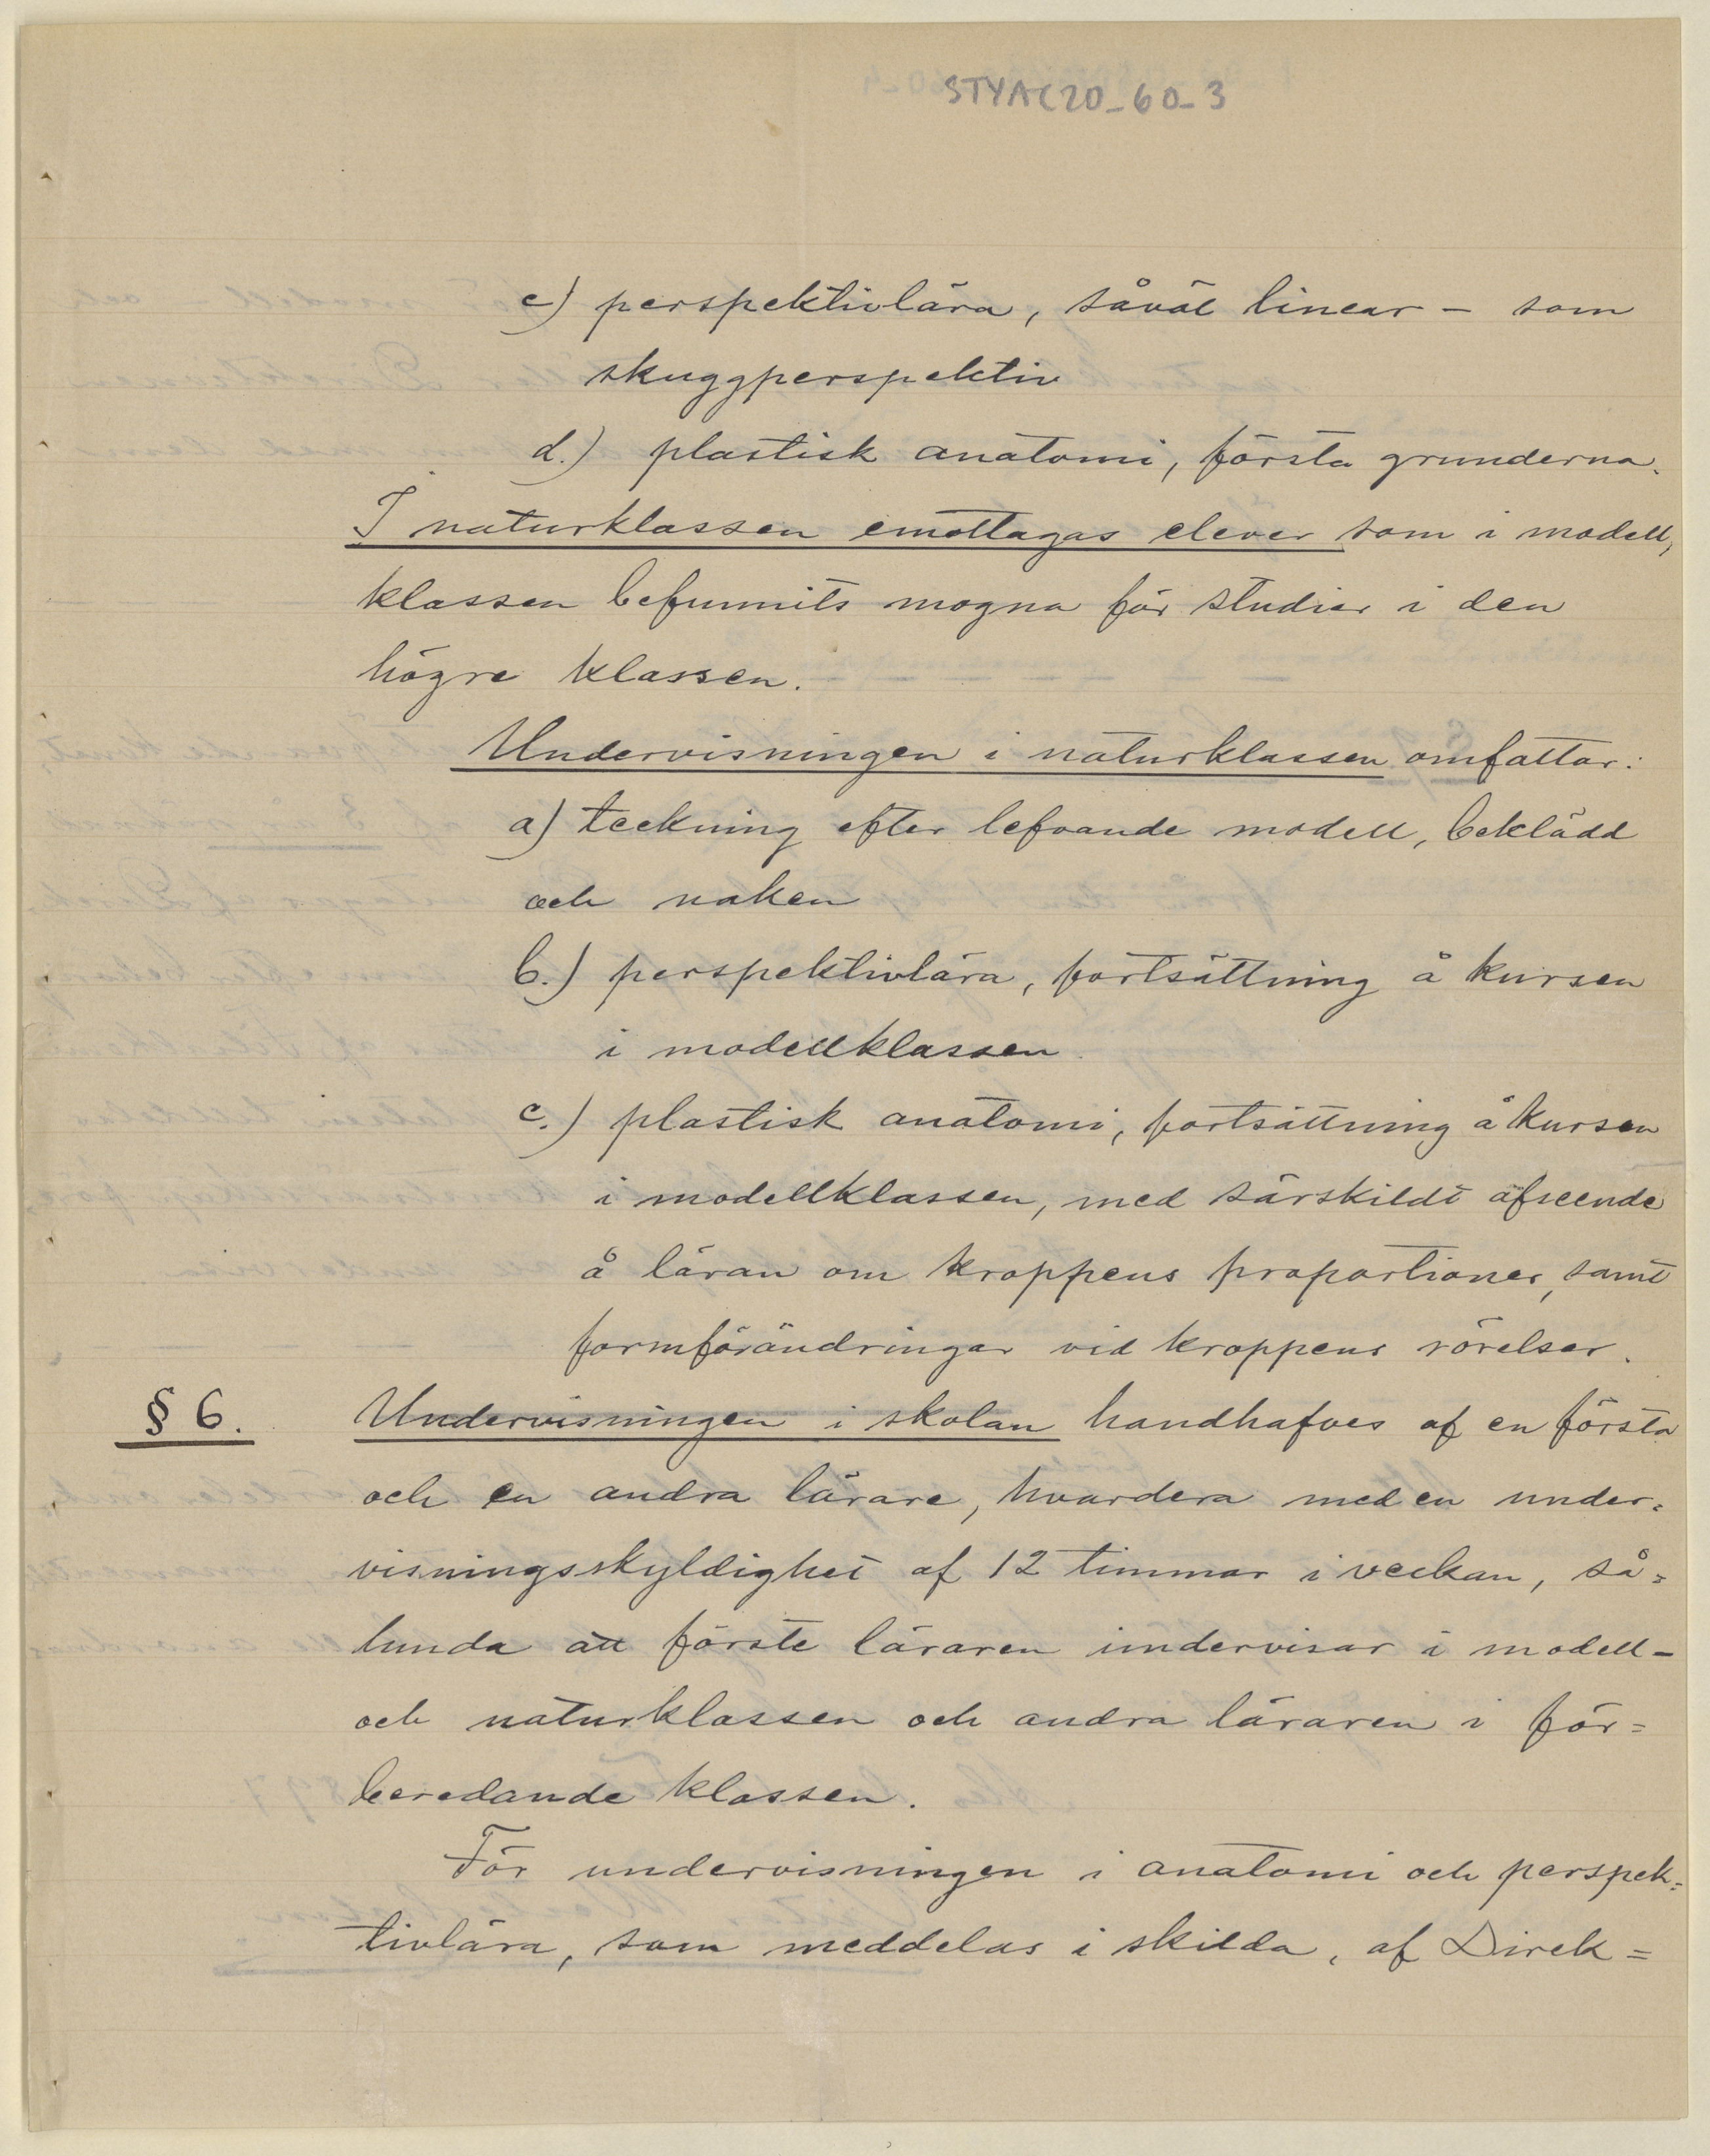 STYAC20_60_3
c) perspektivlära, såväl linear - som
skuggperspektiv
d.) plastisk anatomi, första grunderna.
I naturklassen emottagas elever som i modell,
klassen befunnits mogna för studier i den
högre klassen.
Undervisningen i naturklassen omfattar:
a) teckning efter lefvande modell, beklädd
och naken
b.) perspektivlära, fortsättning å kursen
i modellklassen
c.) plastisk anatomi, fortsättning å kursen
i modellklassen, med särskildt afseende
å läran om kroppens proportioner, samt
formförändringar vid kroppens rörelser.
§ 6. Undervisningen i skolan handhafves af en första
och en andra lärare, hvardera med en under=
visningsskyldighet af 12 timmar i veckan, så=
lunda att förste läraren undervisar i modell-
och naturklassen och andra läraren i för=
beredande klassen.
För undervisningen i anatomi och perspek=
tivlära, som meddelas i skilda, af Direk=